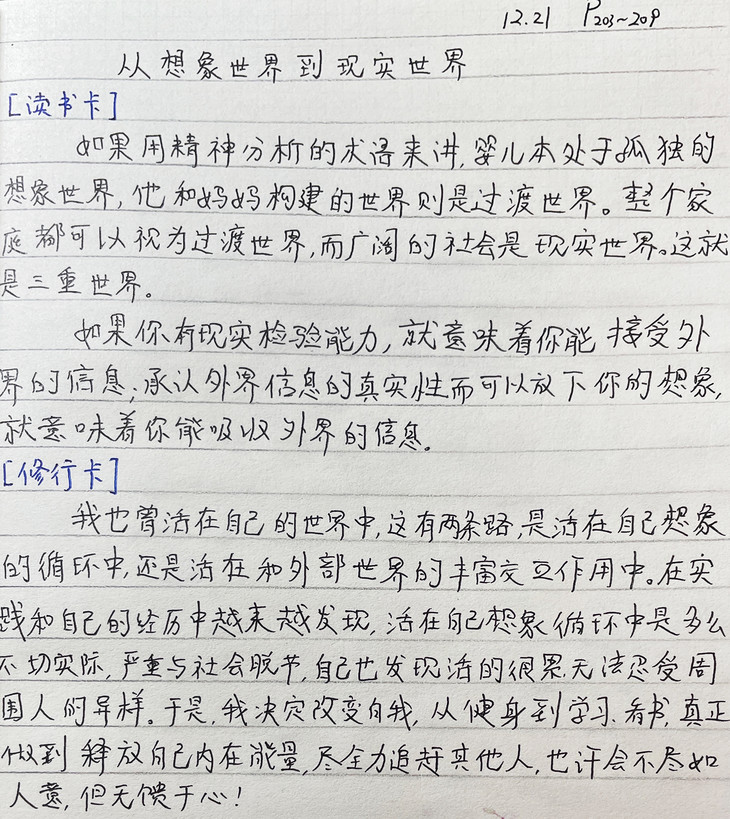 12.21 P203~209
从想象世界到现实世界
[读书卡]
如果用精神分析的术语来讲,婴儿本处于孤独的
想象世界,他和妈妈构建的世界则是过渡世界。整个家
庭都可以视为过渡世界,而广阔的社会是现实世界。这就
是三重世界。
如果你有现实检验能力,就意味着你能接受外
界的信息;承认外界信息的真实性而可以放下你的想象,
就意味着你能吸收外界的信息。
[修行卡]
我也曾活在自己的世界中,这有两条路,是活在自己想象
的循环中,还是活在和外部世界的丰富交互作用中。在实
践和自己的经历中越来越发现,活在自己想象循环中是多么
不切实际,严重与社会脱节,自己也发现活的很累,无法忍受周
围人的异样。于是,我决定改变自我,从健身到学习、看书,真正
做到释放自己内在能量,尽全力追赶其他人,也许会不尽如
人意,但无愧于心!